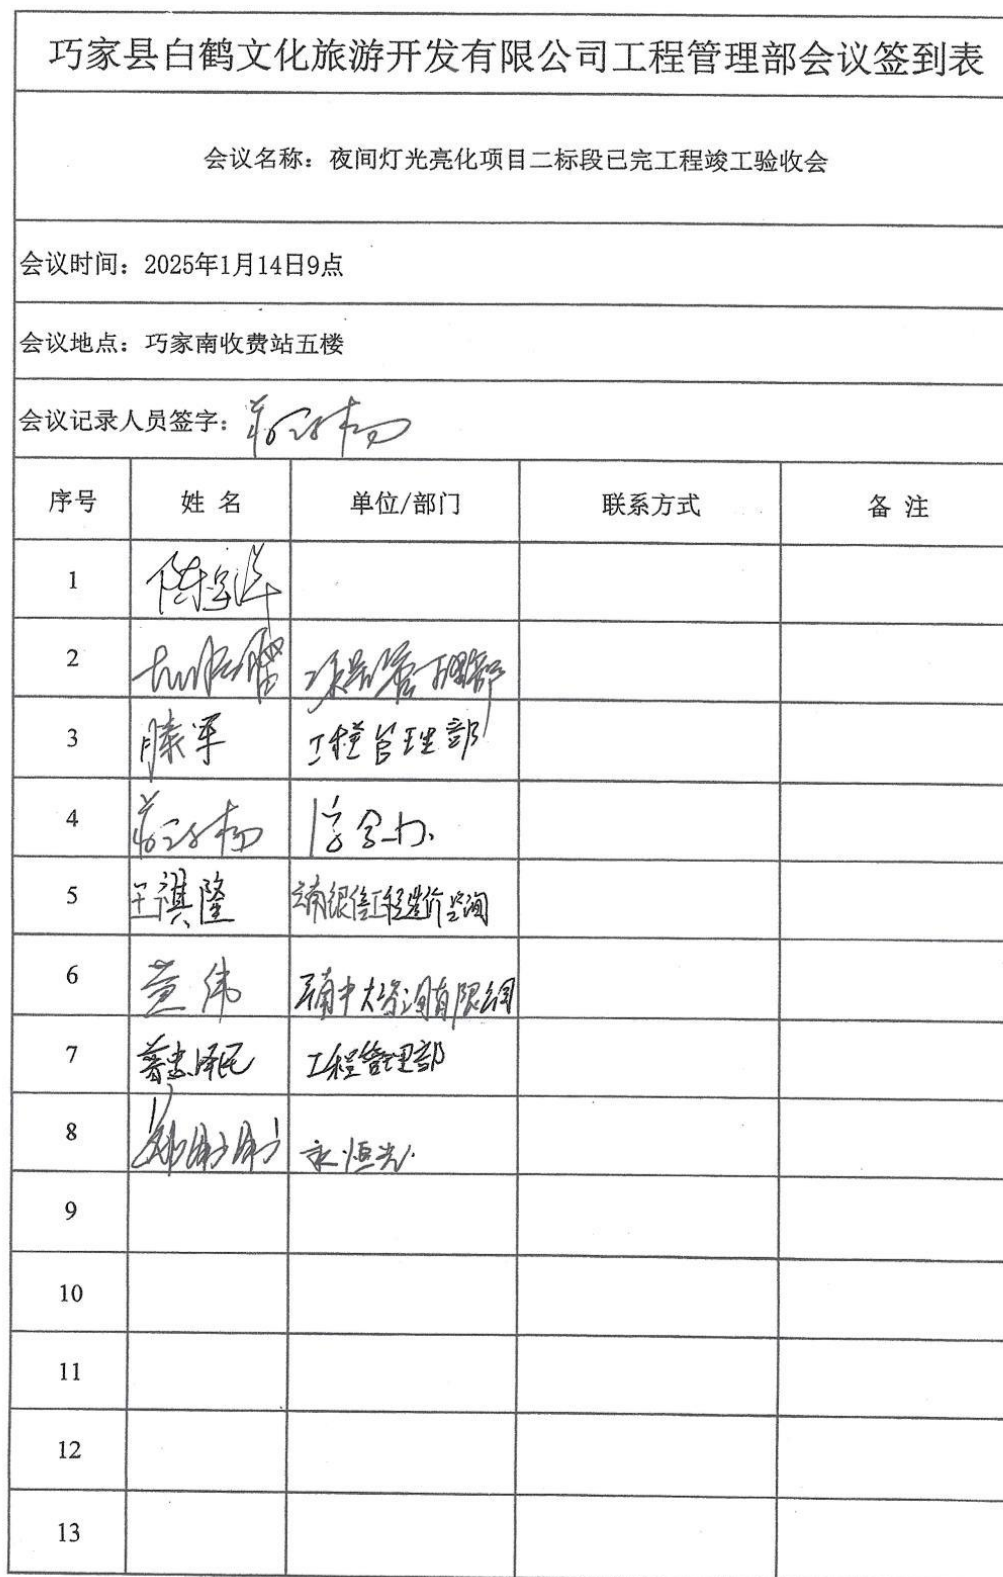 巧家县白鹤文化旅游开发有限公司工程管理部会议签到表
会议名称：夜间灯光亮化项目二标段已完工程竣工验收会
会议时间：2025年1月14日9点
会议地点：巧家南收费站五楼
会议记录人员签字：
序号 姓 名 单位/部门 联系方式 备 注
1
2
3 滕军 工程管理部
4
5 王祺隆 云南银信工程造价咨询
6 伟
7 工程管理部
8 永恒光
9
10
11
12
13